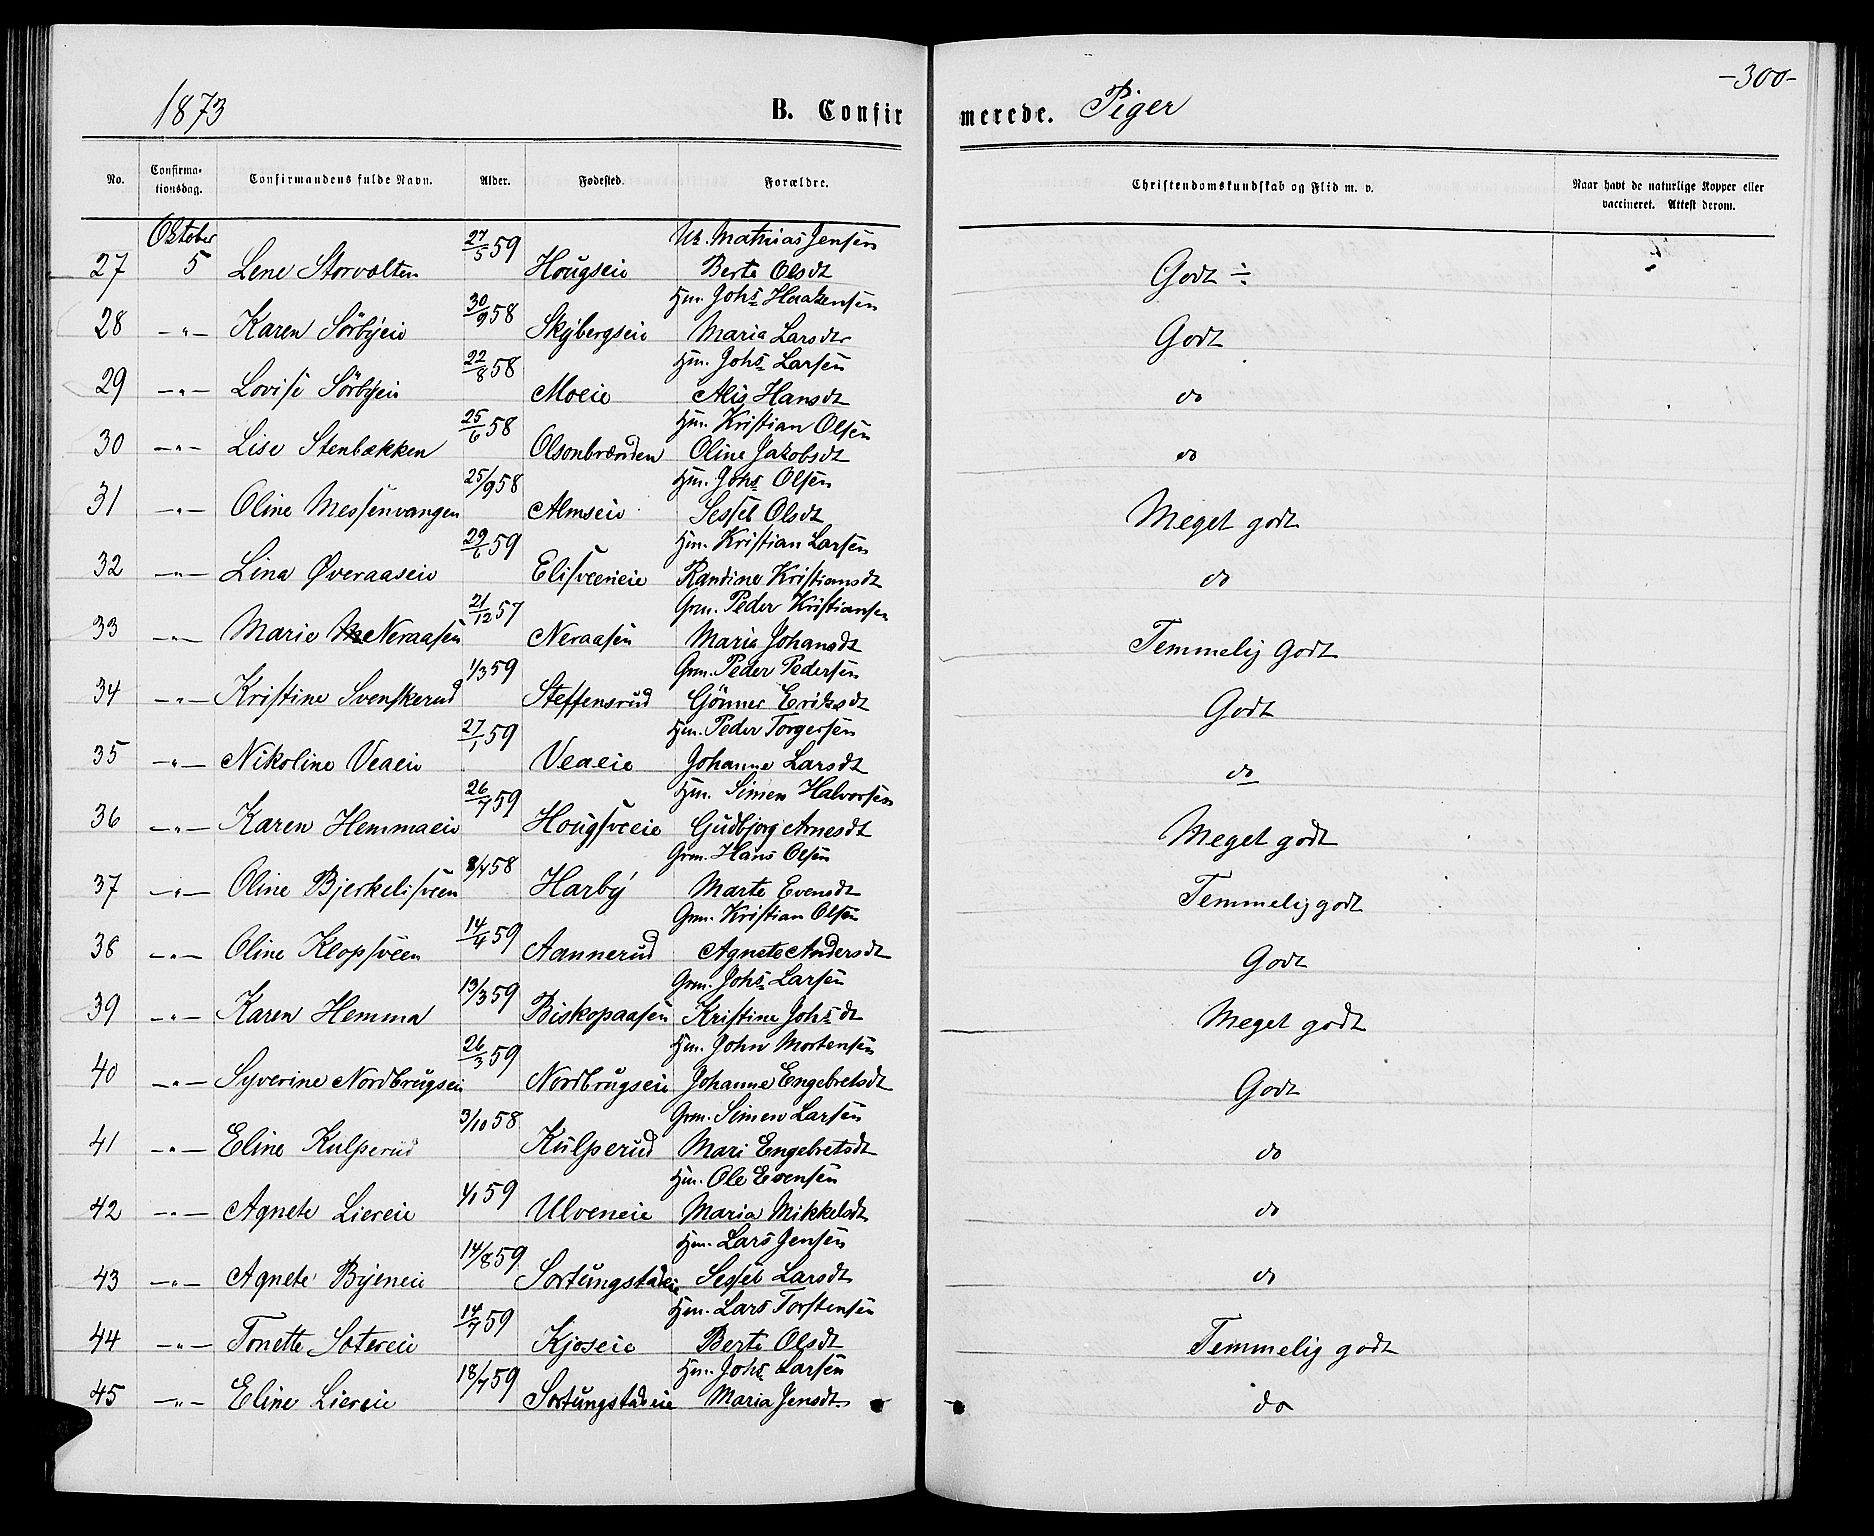 -300-
1873 B. Confir merede. Piger
No. Confirma-tionsdag. Confirmandens fulde Navn. Alder. Fødested. Forældre. Christendomskundskab og Flid m. v. Naar havt de naturlige Kopper eller vaccineret. Attest derom.
Oktober 27/5 59 Mathias Jensen
27 5 Lene Storvolten Hougseie Berte Olsdt Godt ÷
30/9 58 Hm. Johs Haakensen
28 -"- Karen Sörbyeie Skybergseie Maria Larsdtr Godt
22/8 58 Hm. Johs Larsen
29 -"- Lovise Sörbyeie Moeie Alis Hansdt do
25/6 58 Hm. Kristian Olsen
30 -"- Lise Stenbækken Olsonbrænden Oline Jakobsdt do
25/9 58 Hm. Johs Olsen
31 -"- Oline Messenvangen Almseie Sessel Olsdt Meget godt
29/6 59 Hm. Kristian Larsen
32 -"- Lina Øveraaseie Elisveeneie Randine Kristiansdt do
21/12 57 Grm. Peder Kristiansen
33 -"- Marie Neraasen Neraasen Maria Johansdt Temmelig Godt
1/3 59 Grm. Peder Pedersen
34 -"- Kristine Svenskerud Steffensrud Gönner Eriksdt Godt
27/1 59 Hm. Peder Torgersen
35 -"- Nikoline Veaeie Veaeie Johanne Larsdt do
26/7 59 Hm. Simen Halvorsen
36 -"- Karen Hemmaeie Hougsveeie Gudbjorg Arnesdt Meget godt
8/4 58 Grm. Hans Olsen
37 -"- Oline Bjerkelisveen Harby Marte Evensdt Temmelig godt
14/4 59 Grm. Kristian Olsen
38 -"- Oline Klopsveen Aannerud Agnete Andersdt Godt
13/3 59 Grm. Johs Larsen
39 -"- Karen Hemma Biskopaasen Kristine Johsdt Meget godt
26/3 59 Hm. John Mortensen
40 -"- Syverine Nordbrugseie Nordbrugseie Johanne Engebretsdt Godt
3/10 58 Grm. Simen Larsen
41 -"- Eline Kulperud Kulperud Mari Engebretsdt do
1/1 59 Hm. Ole Evensen
42 -"- Agnete Liereie Ulveneie Maria Mikkelsdt do
14/8 59 Hm. Lars Jensen
43 -"- Agnete Byeneie Sortungstadeie Sessel Larsdt do
14/7 59 Hm. Lars Torstensen
44 -"- Tonette Sætereie Kjoseie Berte Olsdt Temmelig godt
18/7 59 Hm. Johs Larsen
45 -"- Eline Liereie Sortungstadeie Maria Jensdt do